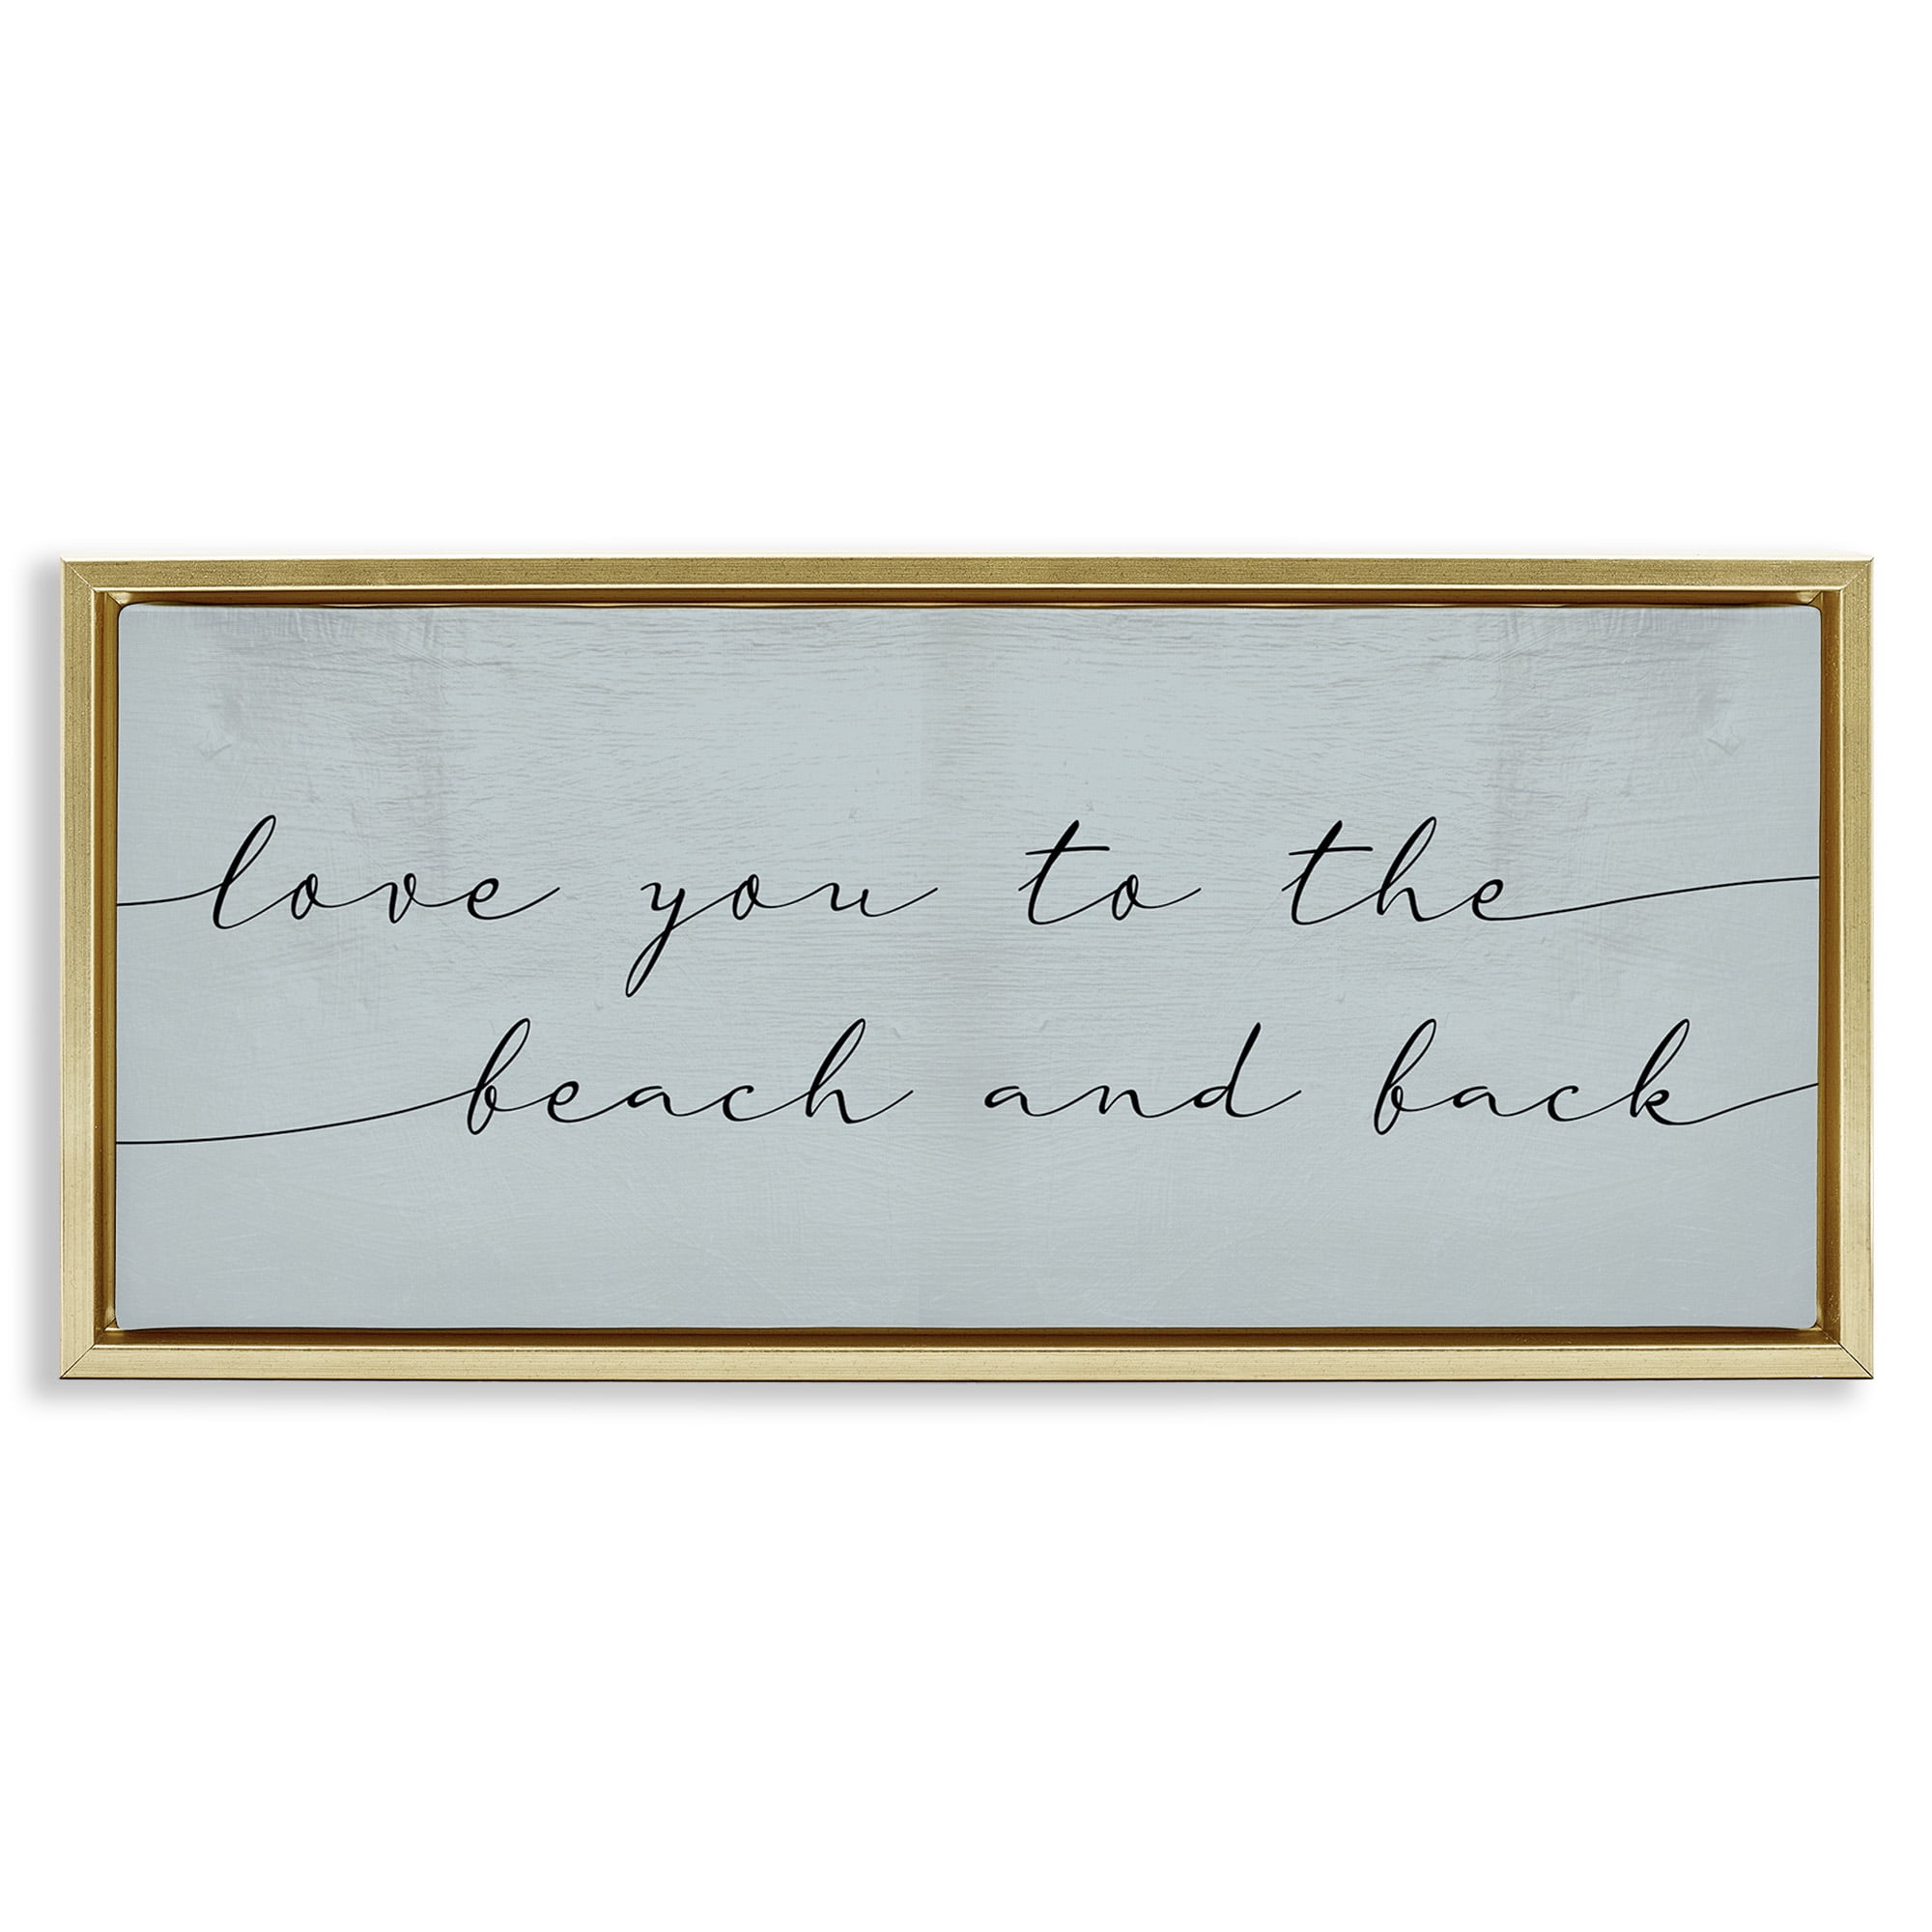 love you to the
beach and back